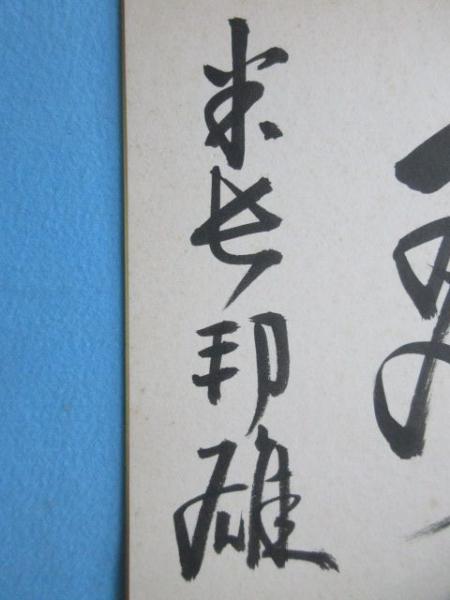 米長邦雄